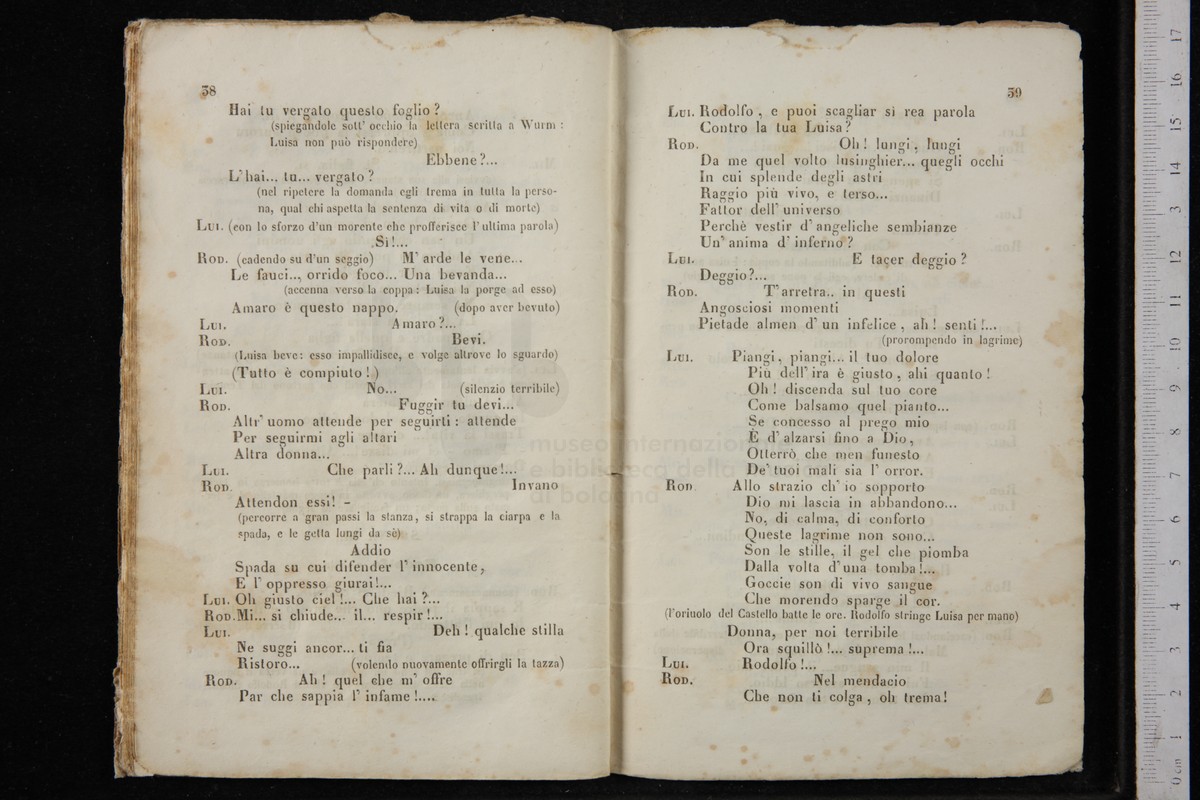 38
Hai tu vergato questo foglio?
(spiegandole sott' occhio la lettera scritta a Wurm :
Luisa non può rispondere)
Ebbene?...
L'hai... tu... vergato?
(nel ripetere la domanda egli trema in tutta la perso-
na, qual chi aspetta la sentenza di vita o di morte)
Lui. (con lo sforzo d'un morente che profferisce l'ultima parola)
Sì!...
Rod. (cadendo su d'un seggio) M'arde le vene...
Le fauci... orrido foco... Una bevanda...
(accenna verso la coppa: Luisa la porge ad esso)
Amaro è questo nappo. (dopo aver bevuto)
Lui. Amaro?...
Rod. Bevi.
(Luisa beve: esso impallidisce, e volge altrove lo sguardo)
(Tutto è compiuto!)
Lui. No... (silenzio terribile)
Rod. Fuggir tu devi...
Altr' uomo attende per seguirti: attende
Per seguirmi agli altari
Altra donna...
Lui. Che parli?... Ah dunque!...
Rod. Invano
Attendon essi! -
(percorre a gran passi la stanza, si strappa la ciarpa e la
spada, e le getta lungi da sè)
Addio
Spada su cui difender l'innocente,
E l'oppresso giurai!...
Lui. Oh giusto ciel!... Che hai?...
Rod. Mi... si chiude... il... respir!...
Lui. Deh! qualche stilla
Ne suggi ancor... ti fia
Ristoro... (volendo nuovamente offrirgli la tazza)
Rod. Ah! quel che m'offre
Par che sappia l'infame!....
39
Lui. Rodolfo, e puoi scagliar sì rea parola
Contro la tua Luisa?
Rod. Oh! lungi, lungi
Da me quel volto lusinghier... quegli occhi
In cui splende degli astri
Raggio più vivo, e terso...
Fattor dell' universo
Perchè vestir d'angeliche sembianze
Un' anima d'inferno?
Lui. E tacer deggio?
Deggio?...
Rod. T'arretra.. in questi
Angosciosi momenti
Pietade almen d'un infelice, ah! senti!...
(prorompendo in lagrime)
Lui. Piangi, piangi... il tuo dolore
Più dell' ira è giusto, ahi quanto!
Oh! discenda sul tuo core
Come balsamo quel pianto...
Se concesso al prego mio
È d'alzarsi fino a Dio,
Otterrò che men funesto
De' tuoi mali sia l'orror.
Rod Allo strazio ch' io sopporto
Dio mi lascia in abbandono...
No, di calma, di conforto
Queste lagrime non sono...
Son le stille, il gel che piomba
Dalla volta d'una tomba!...
Goccie son di vivo sangue
Che morendo sparge il cor.
(l'oriuolo del Castello batte le ore. Rodolfo stringe Luisa per mano)
Donna, per noi terribile
Ora squillò!... suprema!...
Lui. Rodolfo!...
Rod. Nel mendacio
Che non ti colga, oh trema!
museo internazionale
e biblioteca della
di bologna
0 cm 1 2 3 4 5 6 7 8 9 10 11 12 13 14 15 16 17